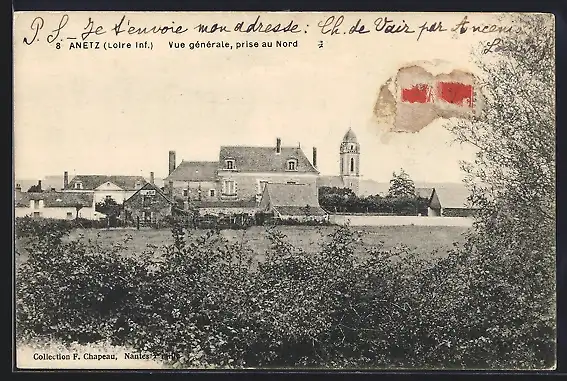 P. S. Je t'envoie mon adresse : Ch. de Vair par Ancenis
8 ANETZ (Loire Inf.) Vue générale, prise au Nord
Collection F. Chapeau, Nantes